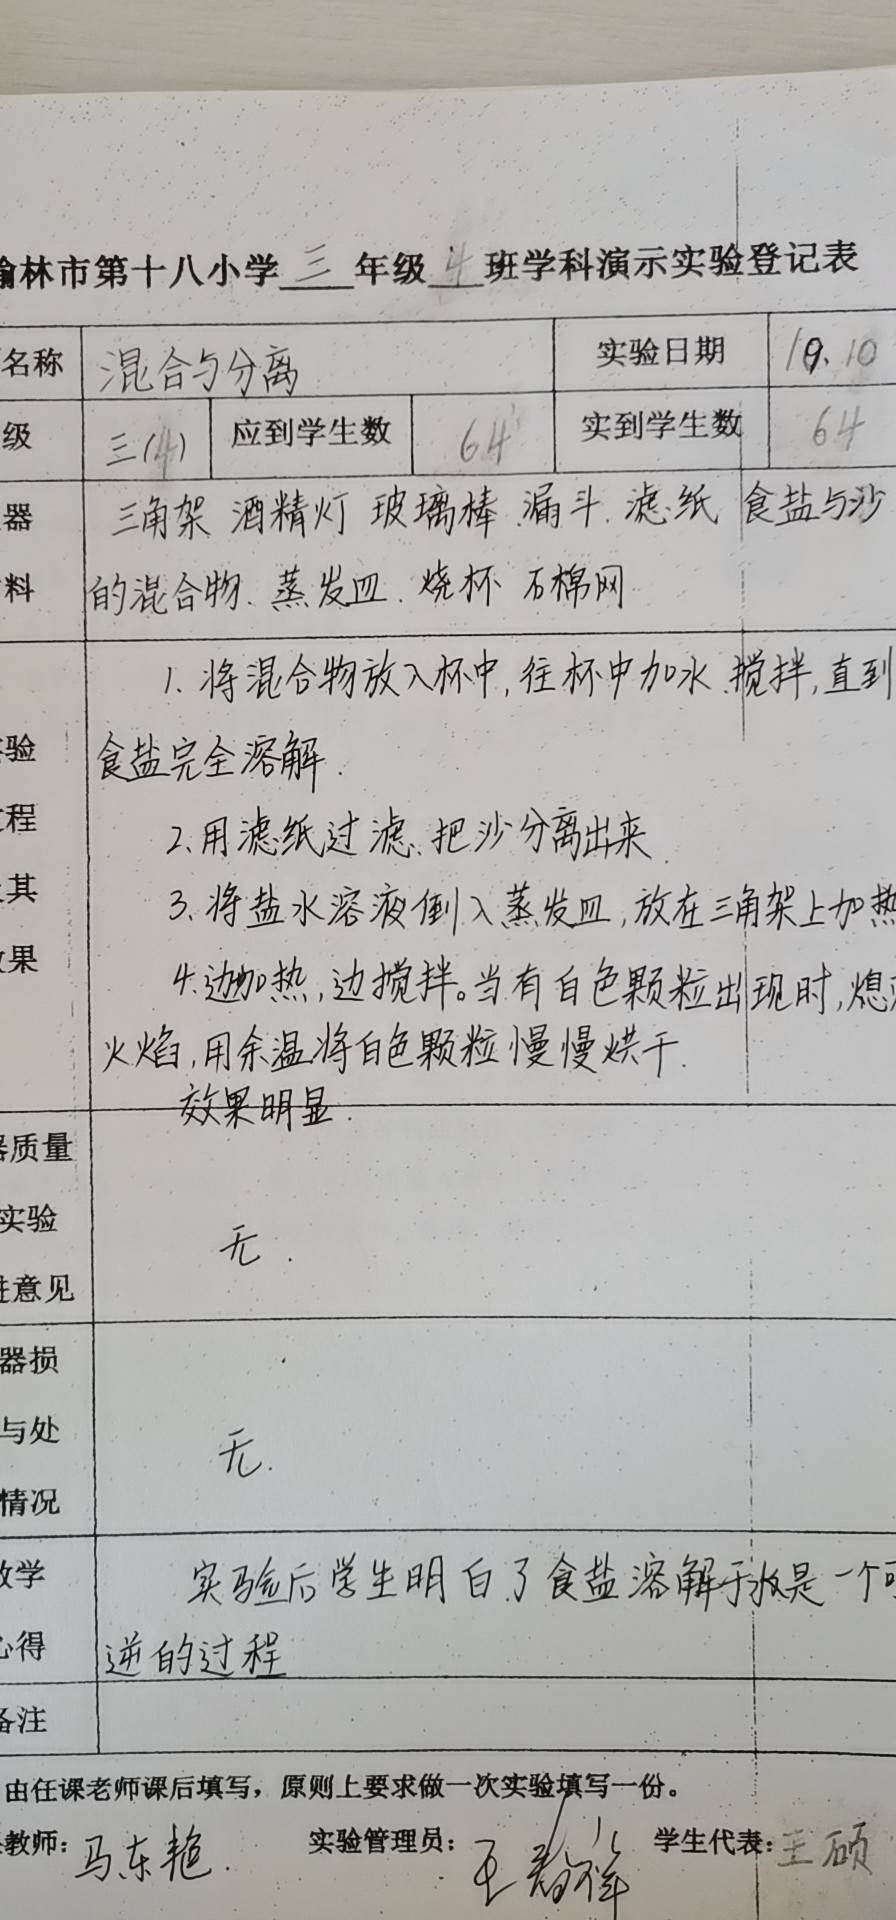 榆林市第十八小学 三 年级 4 班学科演示实验登记表
名称 混合与分离 实验日期 10.10
级 三(4) 应到学生数 64 实到学生数 64
器 三角架 酒精灯 玻璃棒.漏斗.滤纸 食盐与沙
料 的混合物.蒸发皿.烧杯 石棉网
1.将混合物放入杯中,往杯中加水.搅拌,直到
验 食盐完全溶解.
程 2.用滤纸过滤.把沙分离出来.
其 3.将盐水溶液倒入蒸发皿,放在三角架上加热
果 4.边加热,边搅拌。当有白色颗粒出现时,熄
火焰,用余温将白色颗粒慢慢烘干.
效果明显.
质量
实验 无.
意见
器损
与处 无.
情况
教学 实验后学生明白了食盐溶解于水是一个可
心得 逆的过程
备注
由任课老师课后填写，原则上要求做一次实验填写一份。
教师: 马东艳. 实验管理员: 学生代表: 王硕